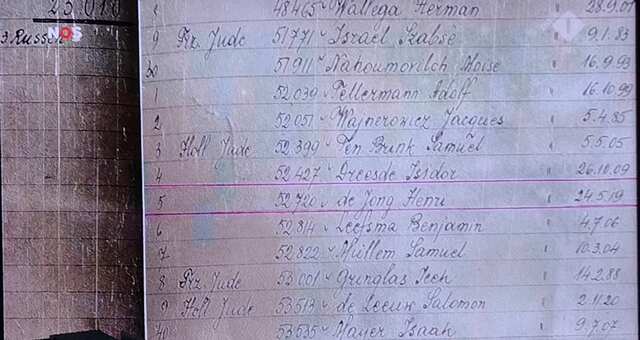 25 010
3. Russen
NOS
8 48465 Wallega Herman " 28.9.01
9 Frz. Jude 51771 Israel Szabse " 9.1.83
30 51911 Nahoumovitch Moise " 16.9.93
1 52039 Fellermann Adolf " 16.10.99
2 52051 Wajnerowicz Jacques " 5.4.85
3 Holl Jude 52399 Ten Brink Samuel " 5.5.05
4 52427 Dreesde Isidor " 26.10.09
5 52720 de Jong Henri " 24.5.19
6 52814 Leefsma Benjamin " 4.7.06
7 52822 Mullem Samuel " 10.3.04
8 Frz Jude 53001 Gringlas Icek " 14.2.88
9 Holl Jude 53513 de Leeuw Salomon " 2.11.20
40 53535 Mayer Isaak " 9.7.07